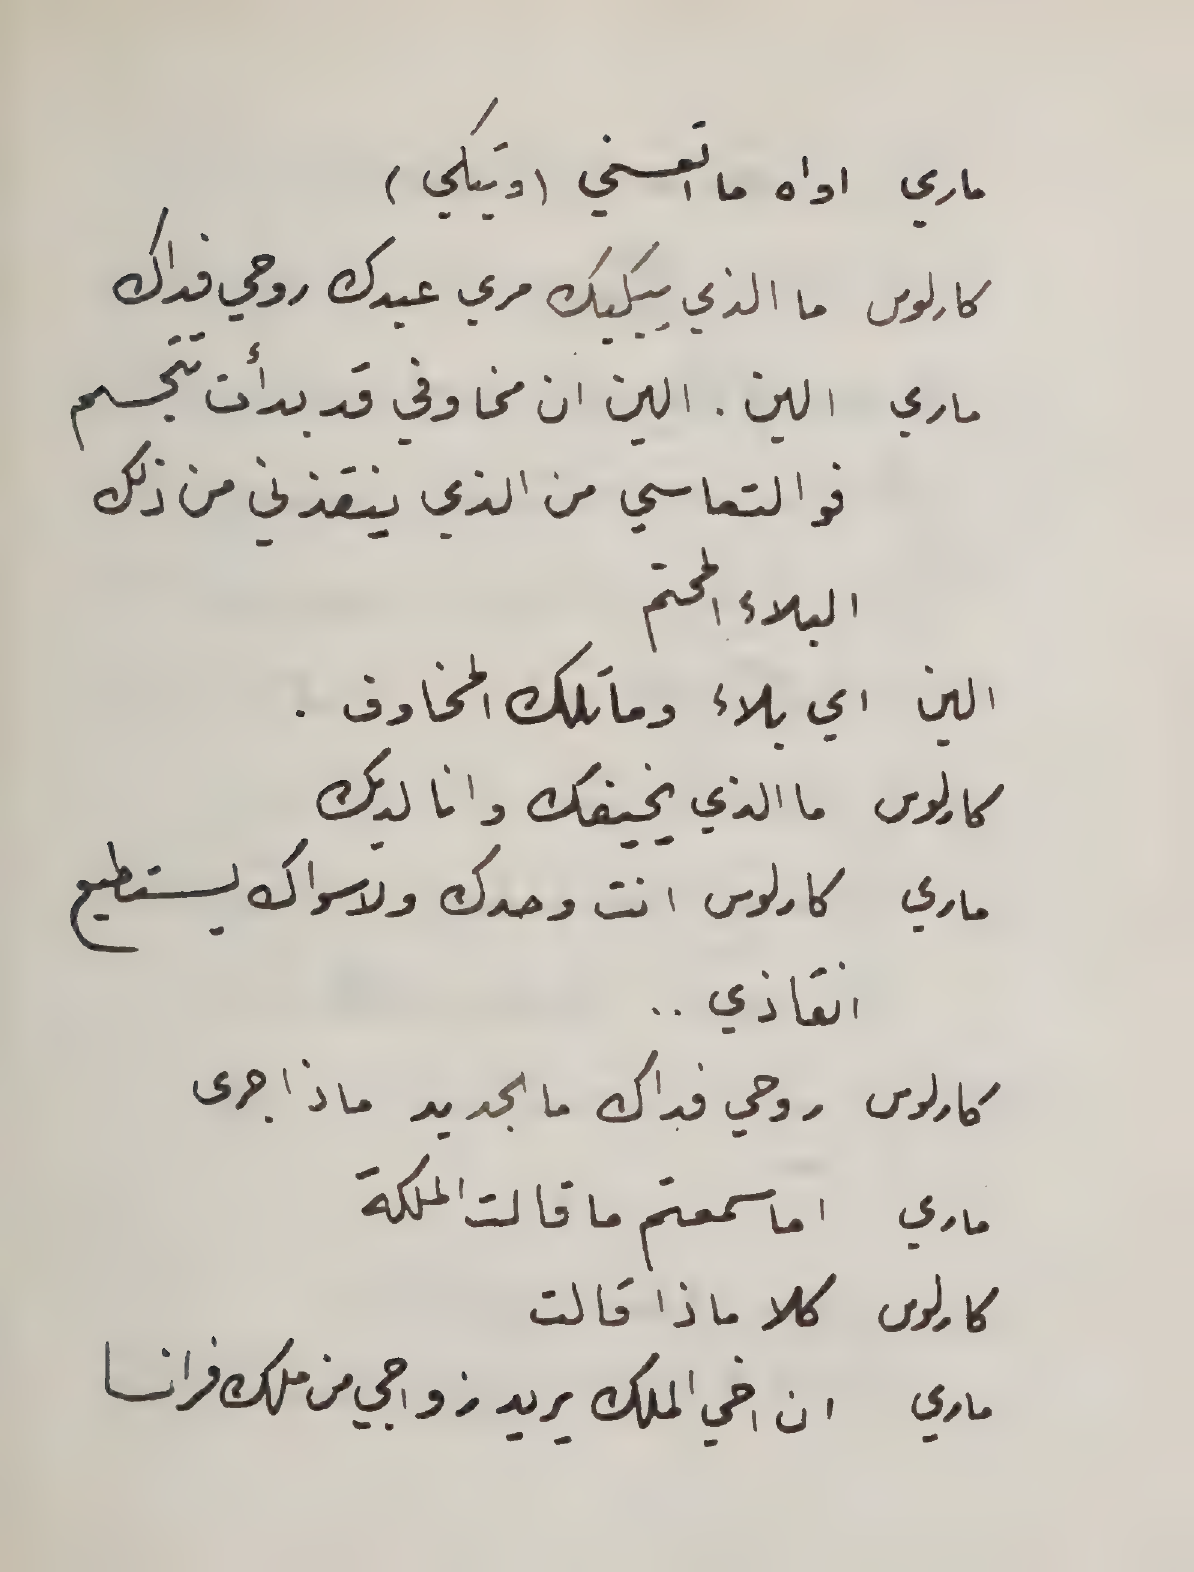 ماري اواه ما اتعسني (وتبكي)
كارلوس ما الذي يبكيك مري عبدك روحي فداك
ماري الين . الين ان مخاوفي قد بدأت تتجسم
فوالتعاسي من الذي ينقذني من ذلك
البلاء المحتم
الين اي بلاء وما تلك المخاوف .
كارلوس ما الذي يخيفك وانا لديك
ماري كارلوس انت وحدك ولا سواك يستطيع
انقاذي ..
كارلوس روحي فداك ما الجديد ماذا جرى
ماري اما سمعتم ما قالت الملكة
كارلوس كلا ماذا قالت
ماري ان اخي الملك يريد زواجي من ملك فرانسا